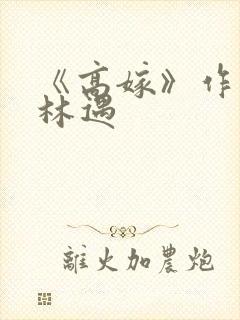 《高嫁》作
林遇
離火加農炮